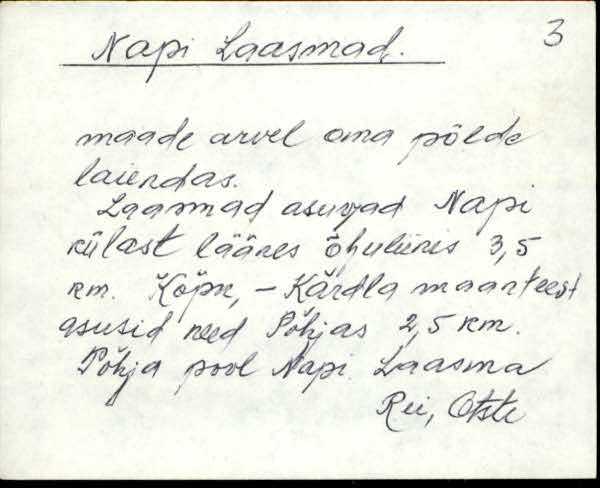 3
Napi Laasmad.
maade arvel oma põlde
laiendas.
Laasmad asuvad Napi
külast lääres õhuliinis 3,5
km. Kõpu, - Kärdla maanteest
asusid need Põhjas 2,5 km.
Põhja pool Napi Laasma
Rei, Otste